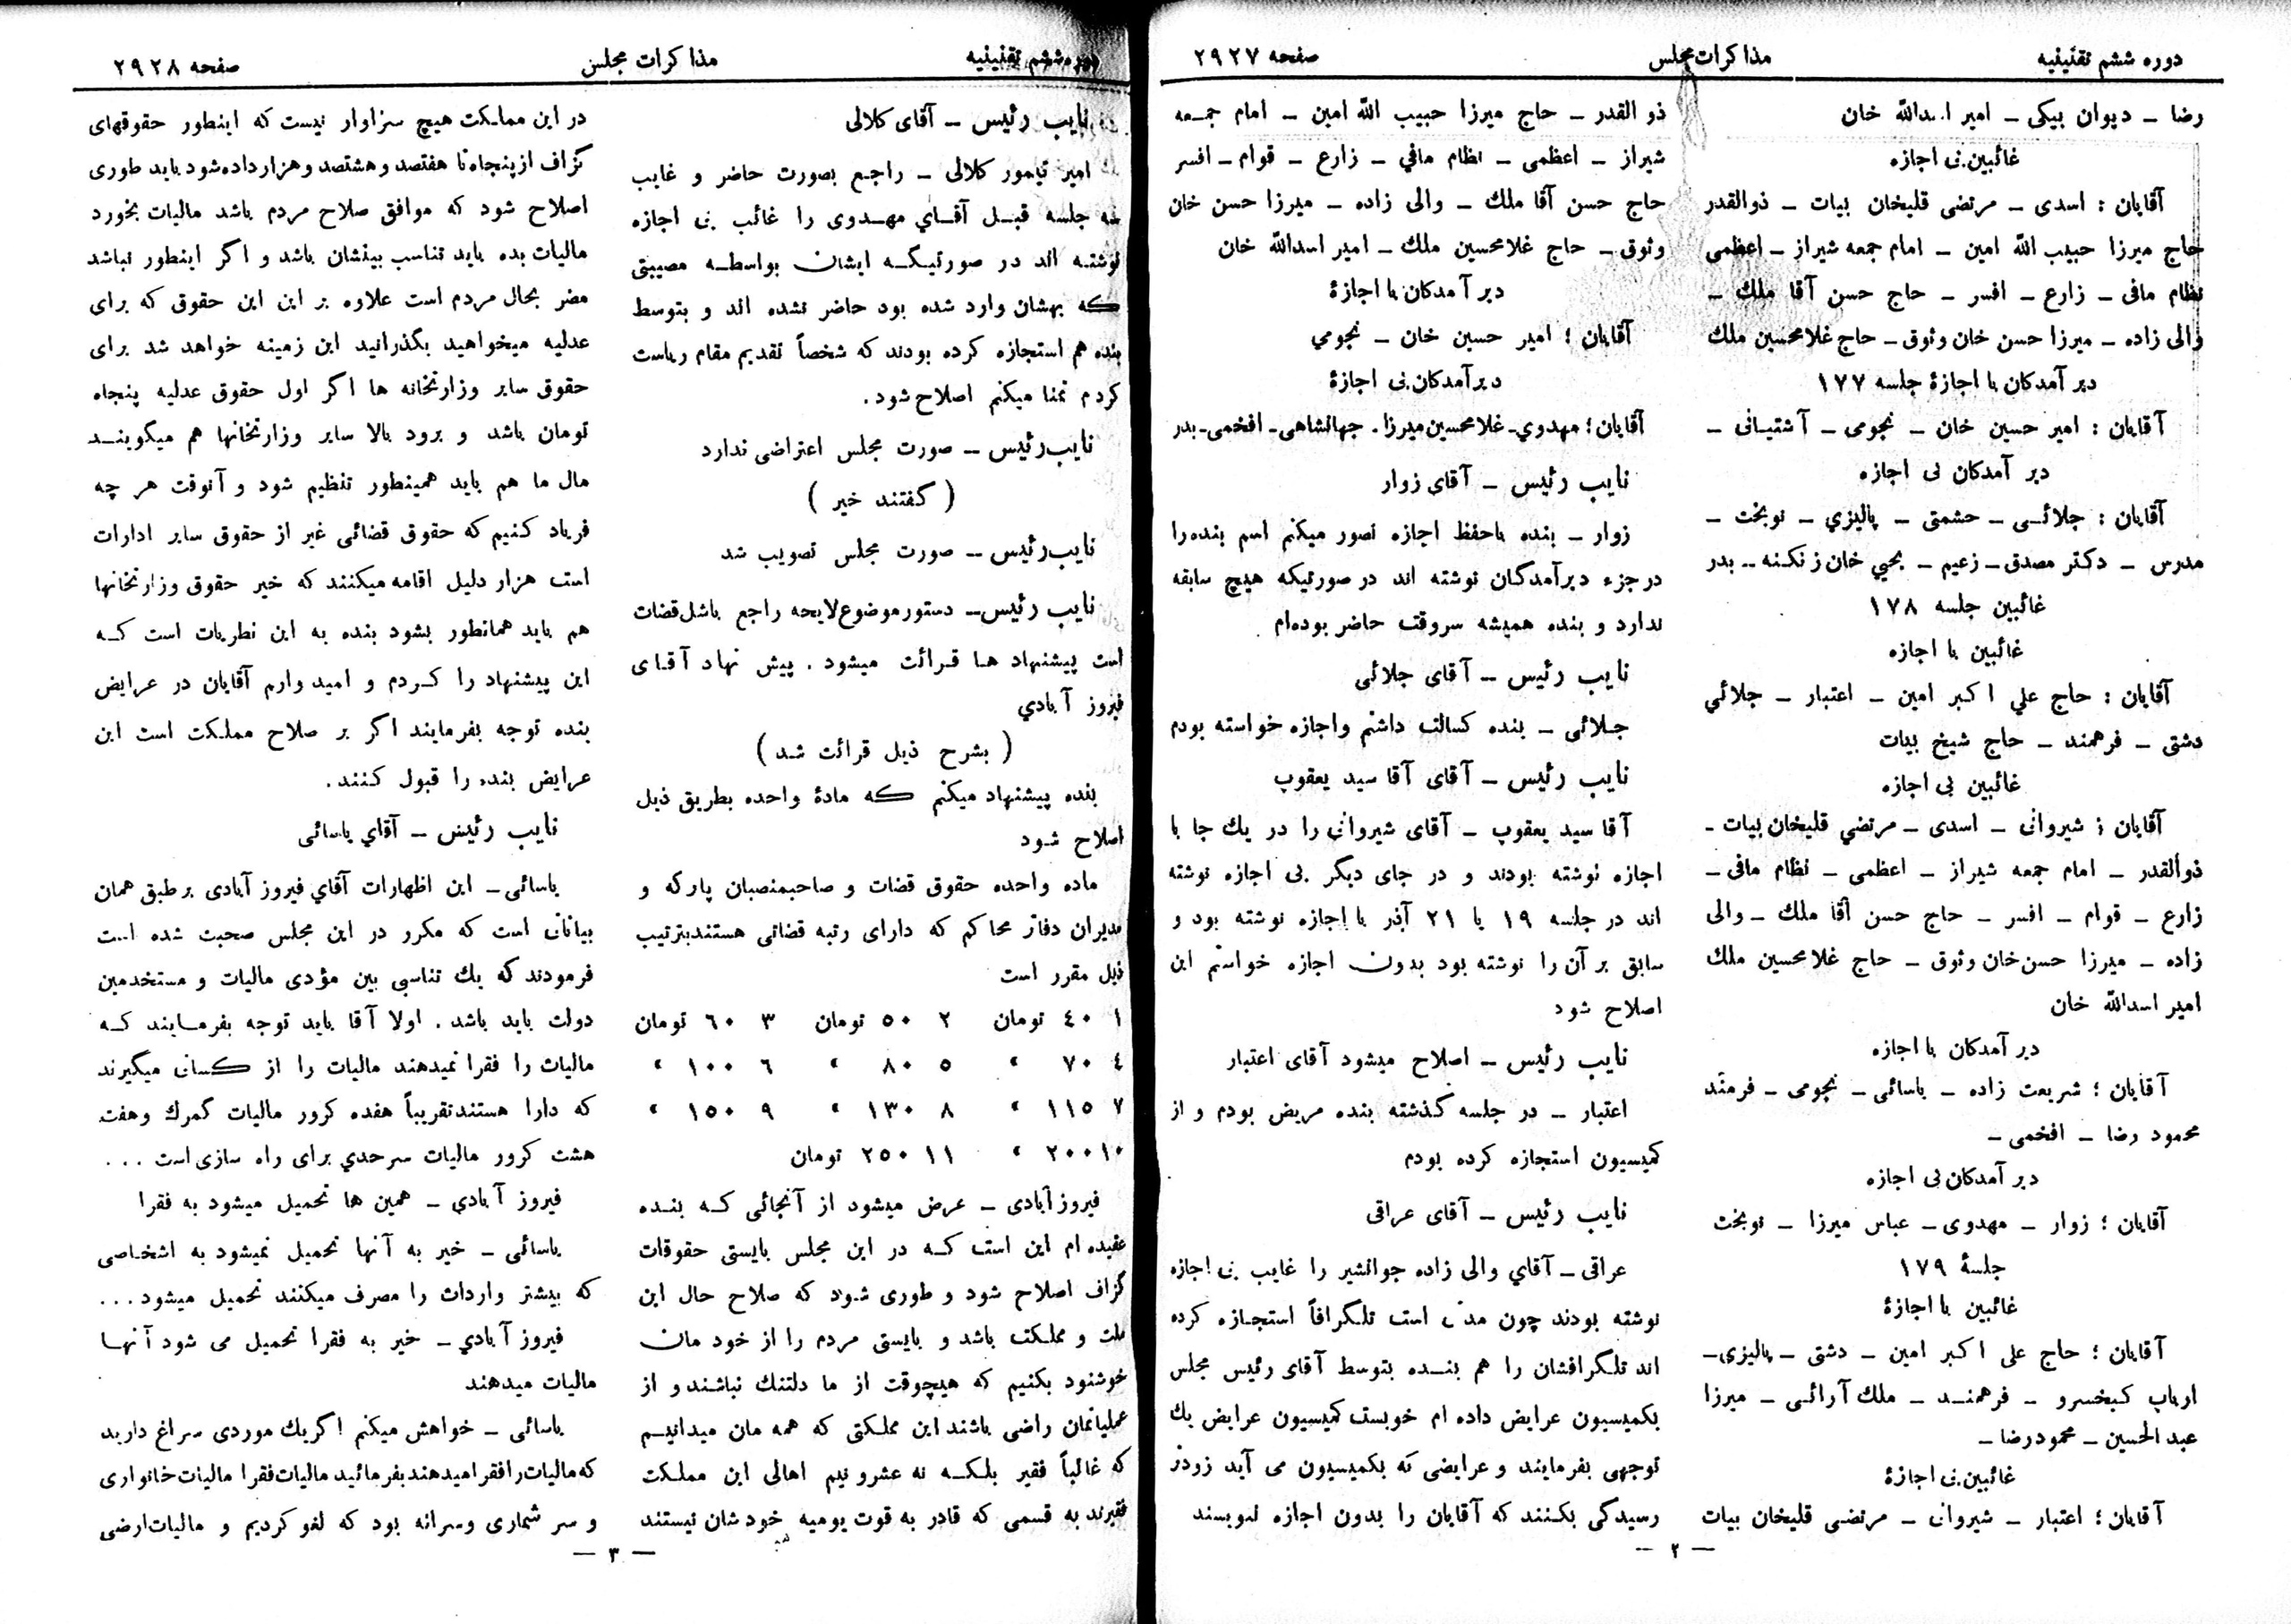 دوره ششم تقنینیه
مذاکرات مجلس
صفحه ۲۹۲۷
رضا ـ دیوان بیکی ـ امیر اسدالله خان
غائبین بی اجازه
آقایان : اسدی ـ مرتضی قلیخان بیات ـ ذوالقدر
حاج میرزا حبیب الله امین ـ امام جمعه شیراز ـ اعظمی
نظام مافی ـ زارع ـ افسر ـ حاج حسن آقا ملك ـ
والی زاده ـ میرزا حسن خان وثوق ـ حاج غلامحسین ملك
دیر آمدکان با اجازهٔ جلسه ۱۷۷
آقایان : امیر حسین خان ـ نجومی ـ آشتیانی ـ
دیر آمدکان بی اجازه
آقایان : جلائی ـ حشمتی ـ پالیزي ـ نوبخت ـ
مدرس ـ دکتر مصدق ـ زعیم ـ یحیي خان زنکنه ـ بدر
غائبین جلسه ۱۷۸
غائبین با اجازه
آقایان : حاج علي اکبر امین ـ اعتبار ـ جلائي
دشتی ـ فرهمند ـ حاج شیخ بیات
غائبین بی اجازه
آقایان ؛ شیروانی ـ اسدی ـ مرتضي قلیخان بیات ـ
ذوألقدر ـ امام جمعه شیراز ـ اعظمی ـ نظام مافی ـ
زارع ـ قوام ـ افسر ـ حاج حسن آقا ملك ـ والی
زاده ـ میرزا حسن خان وثوق ـ حاج غلامحسین ملك
امیر اسدالله خان
دیر آمدکان با اجازه
آقایان ؛ شریعت زاده ـ یاسائی ـ نجومی ـ فرمند
محمود رضا ـ افخمی ـ
دیر آمدکان بی اجازه
آقایان ؛ زوار ـ مهدوی ـ عباس میرزا ـ نوبخت
جلسهٔ ۱۷۹
غائبین با اجازهٔ
آقایان ؛ حاج علی اکبر امین ـ دشتی ـ پالیزی ـ
ارباب کیخسرو ـ فرهمنـد ـ ملك آرائی ـ میرزا
عبدالحسین ـ محمودرضا ـ
غائبین بی اجازهٔ
آقایان ؛ اعتبار ـ شیروانی ـ مرتضی قلیخان بیات
ذو القدر ـ حاج میرزا حبیب الله امین ـ امام جمـعه
شیراز ـ اعظمی ـ نظام مافي ـ زارع ـ قوام ـ افسر
حاج حسن آقا ملك ـ والی زاده ـ میرزا حسن خان
وثوق ـ حاج غلامحسین ملك ـ امیر اسدالله خان
دیر آمدکان با اجازهٔ
آقایان ؛ امیر حسین خان ـ نجومي
دیرآمدکان بی اجازهٔ
آقایان ؛ مهدوي ـ غلامحسین میرزا ـ جهانشاهی ـ افخمی ـ بدر
نایب رئیس ـ آقای زوار
زوار ـ بنده باحفظ اجازه تصور میکنم اسم بنده را
در جزء دیرآمدگان نوشته اند در صورتیکه هیچ سابقه
ندارد و بنده همیشه سروقت حاضر بوده‌ام
نایب رئیس ـ آقای جلائی
جلائی ـ بنده کسالت داشتم واجازه خواسته بودم
نایب رئیس ـ آقای آقا سید یعقوب
آقا سید یعقوب ـ آقای شیروانی را در یك جا با
اجازه نوشته بودند و در جای دیگر بی اجازه نوشته
اند در جلسه ۱۹ یا ۲۱ آذر با اجازه نوشته بود و
سابق بر آن را نوشته بود بدون اجازه خواستم این
اصلاح شود
نایب رئیس ـ اصلاح میشود آقای اعتبار
اعتبار ـ در جلسه گذشته بنده مریض بودم و از
کمیسیون استجازه کرده بودم
نایب رئیس ـ آقای عراقی
عراقی ـ آقاي والی زاده جوانشیر را غایب بی اجازه
نوشته بودند چون مدتی است تلگرافاً استجـازه کرده
اند تلگرافشان را هم بنـده بتوسط آقای رئیس مجلس
بکمیسیون عرایض داده ام خوبست کمیسیون عرایض یك
توجهی بفرمایند و عرایضی که بکمیسیون می آید زودتر
رسیدگی بکنند که آقایان را بدون اجازه ننویسند
ـ ۲ ـ
دوره ششم تقنینیه
مذاکرات مجلس
صفحه ۲۹۲۸
نایب رئیس ـ آقای کلالی
امیر تیمور کلالی ـ راجع بصورت حاضر و غایب
جلسه قبـل آقـاي مهـدوی را غائب بی اجازه
نوشته اند در صورتیـکـه ایشان بواسطـه مصیبتی
که بهشان وارد شده بود حاضر نشده اند و بتوسط
بنده هم استجازه کرده بودند که شخصاً تقدیم مقام ریاست
کردم تمنا میکنم اصلاح شود.
نایب رئیس ـ صورت مجلس اعتراضی ندارد
( گفتند خیر )
نایب رئیس ـ صورت مجلس تصویب شد
نایب رئیس ـ دستور موضوع لایحه راجع باشل قضات
است پیشنهاد هـا قـرائت میشود . پیش نهاد آقـای
فیروز آبادي
( بشرح ذیل قرائت شـد )
بنده پیشنهاد میکنم کـه مادهٔ واحده بطریق ذیل
اصلاح شـود
ماده واحده حقوق قضات و صاحبمنصبان پارکه و
مدیران دفاتر محاکم که دارای رتبه قضائی هستند بترتیب
ذیل مقرر است
۱ ٤۰ تومان ۲ ٥۰ تومان ۳ ٦۰ تومان
٤ ۷۰ « ٥ ۸۰ « ٦ ۱۰۰ «
۷ ۱۱٥ « ۸ ۱۳۰ « ۹ ۱٥۰ «
۱۰ ۲۰۰ « ۱۱ ۲٥۰ تومان
فیروزآبادی ـ عرض میشود از آنجائی کـه بنـده
عقیده ام این است کـه در این مجلس بایستی حقوقات
گزاف اصلاح شود و طوری شود که صلاح حال این
ملت و مملکت باشد و بایستی مردم را از خود مان
خوشنود بکنیم که هیچوقت از ما دلتنك نباشند و از
عملیاتمان راضی باشند این مملکتی که همه مان میدانیـم
که غالباً فقیر بلکـه نه عشر و نیم اهالی این مملکت
فقیرند به قسمی که قادر به قوت یومیه خودشان نیستند
در این مملکت هیچ سزاوار نیست که اینطور حقوقهای
گزاف از پنجاه تا هفتصد و هشتصد و هزار داده شود باید طوری
اصلاح شود که موافق صلاح مردم باشد مالیات بخورد
مالیات بده باید تناسب بینشان باشد و اگر اینطور نباشد
مضر بحال مردم است علاوه بر این این حقوق که برای
عدلیه میخواهید بگذرانید این زمینه خواهد شد برای
حقوق سایر وزارتخانه ها اگر اول حقوق عدلیه پنجاه
تومان باشد و برود بالا سایر وزارتخانها هم میگوینـد
مال ما هم باید همینطور تنظیم شود و آنوقت هر چه
فریاد کنیم که حقوق قضائی غیر از حقوق سایر ادارات
است هزار دلیل اقامه میکنند که خیر حقوق وزارتخانها
هم باید همانطور بشود بنده به این نظریات است کـه
این پیشنهاد را کـردم و امید وارم آقایان در عرایض
بنده توجه بفرمایند اگر بر صلاح مملکت است این
عرایض بنده را قبول کنند.
نایب رئیس ـ آقاي یاسائی
یاسائی ـ این اظهارات آقاي فیروز آبادی برطبق همان
بیاناتی است که مکرر در این مجلس صحبت شده است
فرمودند که یك تناسبی بین مؤدی مالیات و مستخدمین
دولت باید باشد . اولا آقا باید توجه بفرمـایند کـه
مالیات را فقرا نمیدهند مالیات را از کسانی میگیرند
که دارا هستند تقریباً هفده کرور مالیات گمرك وهفت
هشت کرور مالیات سرحدي برای راه سازی است ...
فیروز آبادي ـ همین ها تحمیل میشود به فقرا
یاسائی ـ خیر به آنها تحمیل نمیشود به اشخاصی
که بیشتر واردات را مصرف میکنند تحمیل میشود...
فیروز آبادي ـ خیر به فقرا تحمیل می شود آنهـا
مالیات میدهند
یاسائی ـ خواهش میکنم اگر یك موردی سراغ دارید
که مالیات را فقرا میدهند بفرمائید مالیات فقرا مالیات خانواری
و سر شماری و سرانه بود که لغو کردیم و مالیات ارضی
ـ ۳ ـ